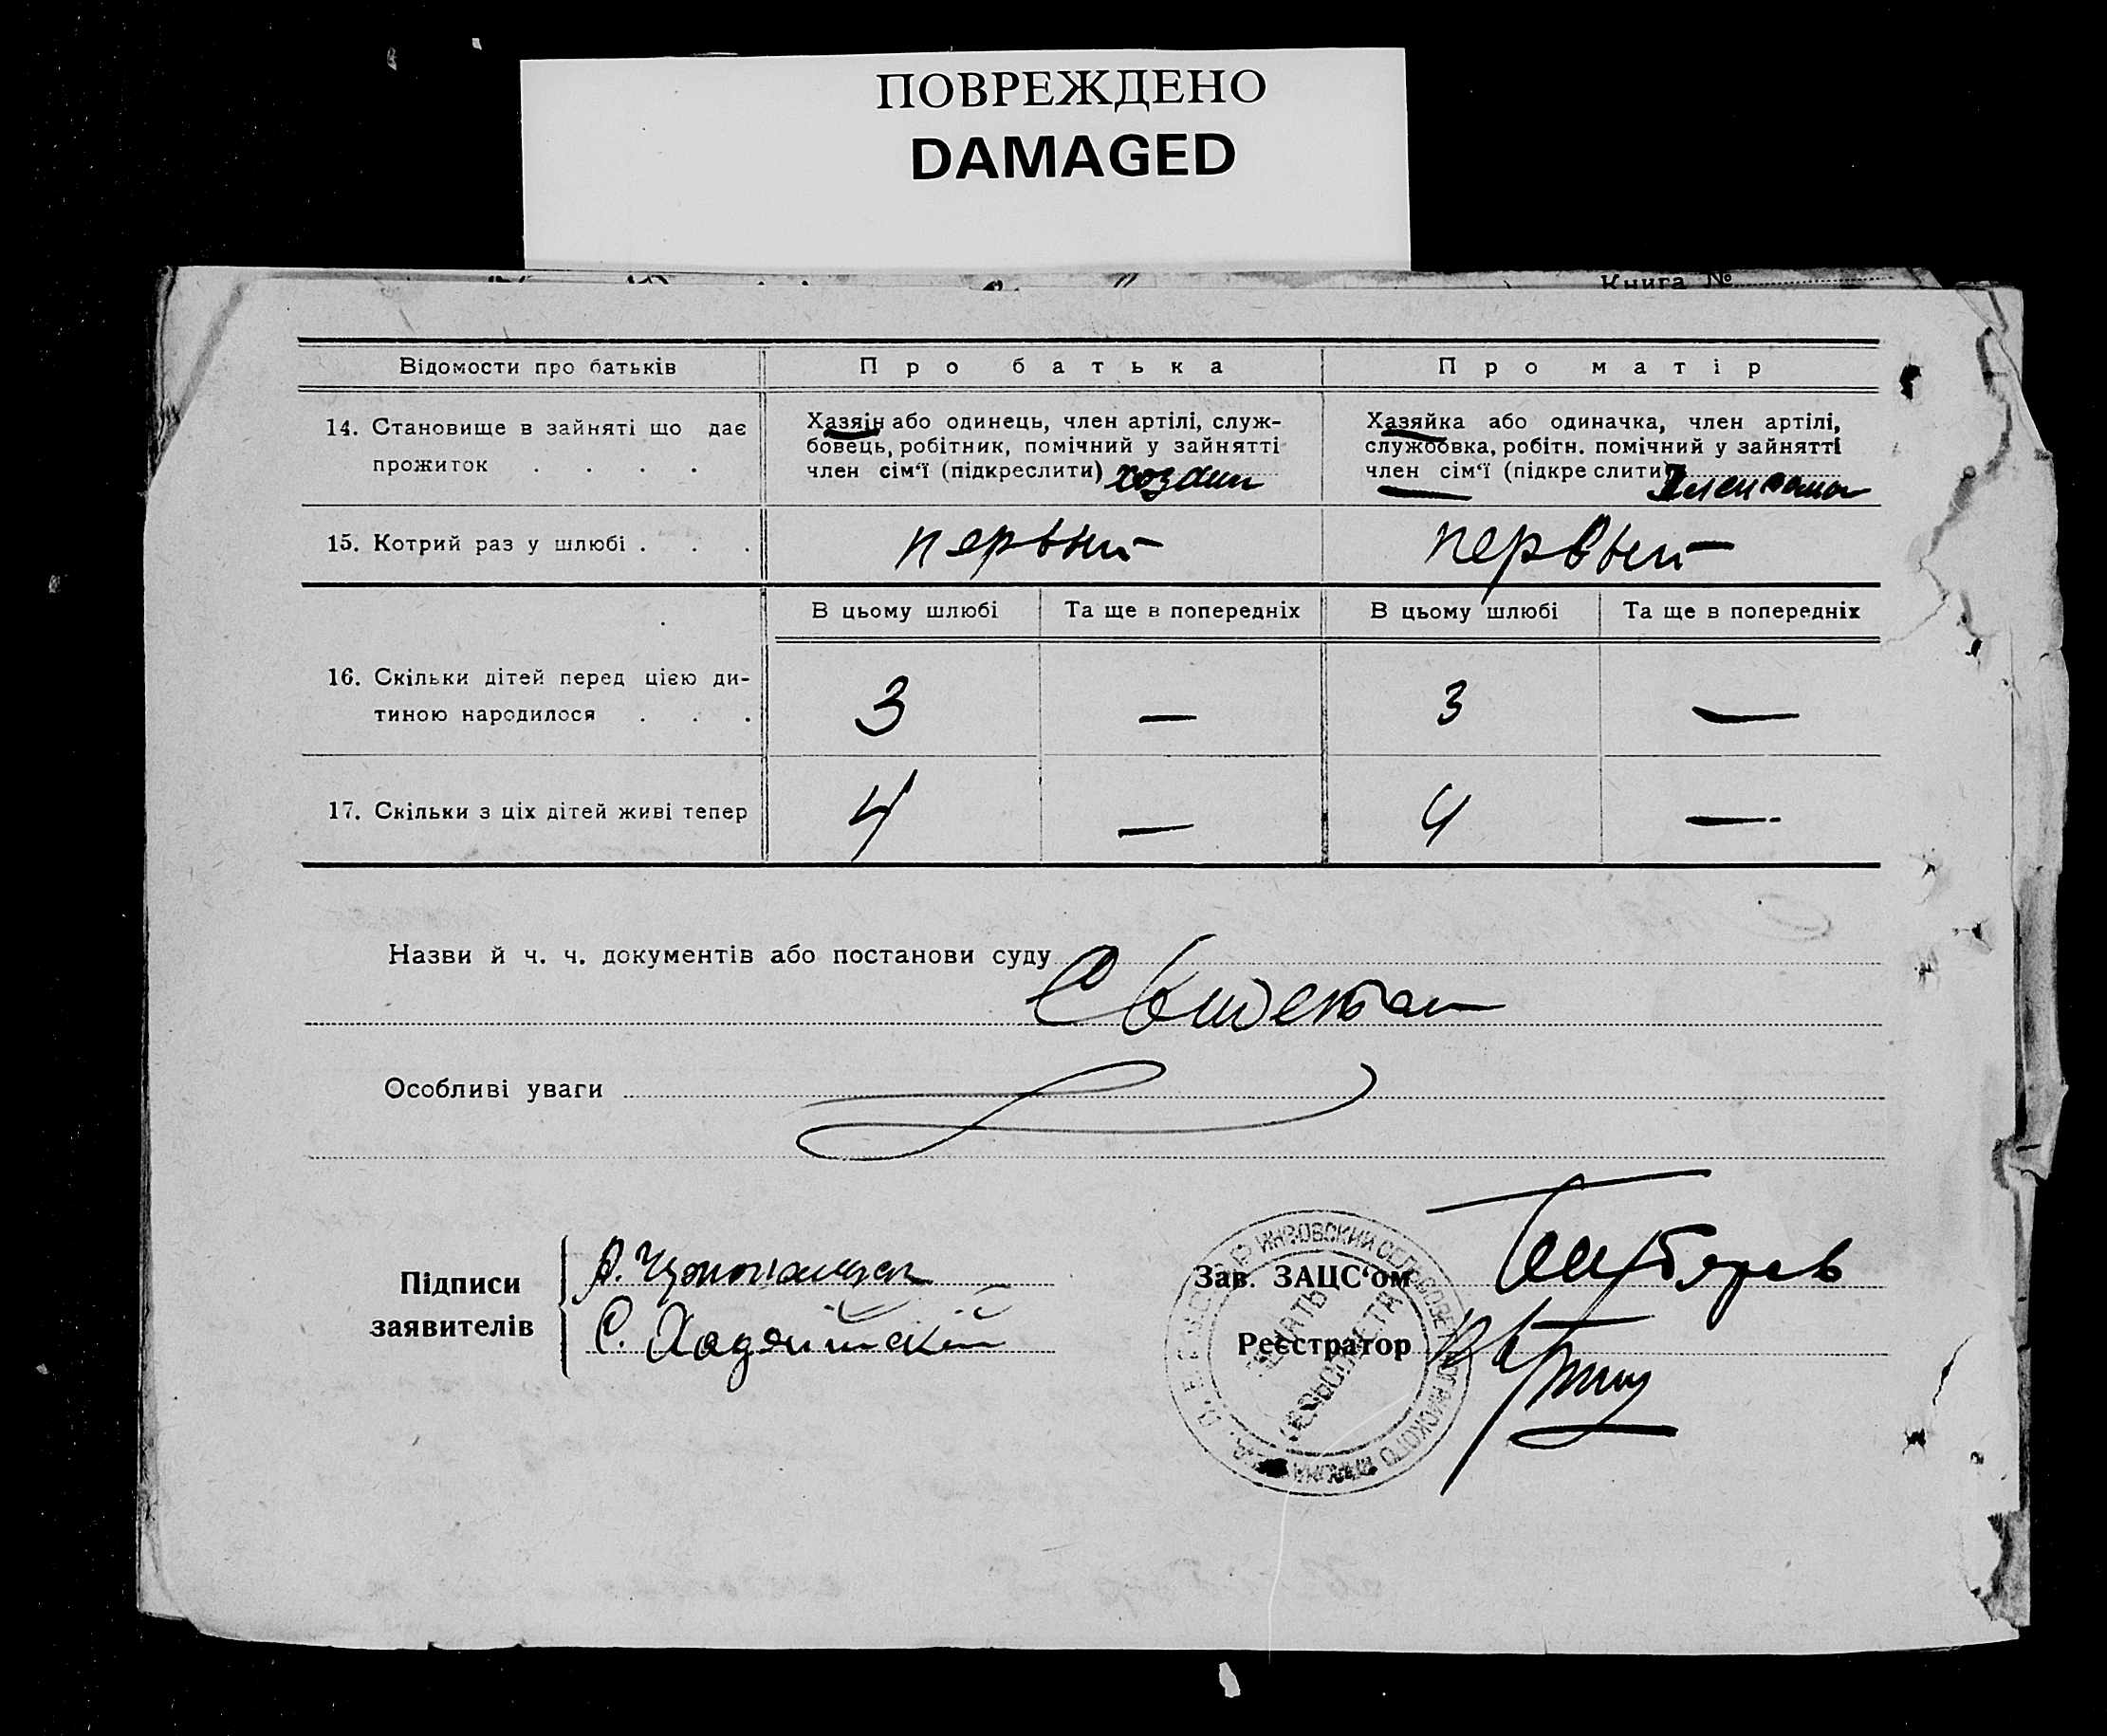 ПОВРЕЖДЕНО
DAMAGED
Книга №
Відомости про батьків
Про батька
Про матір
14. Становище в зайняті що дає
прожиток . . . .
Хазяін або одинець, член артілі, служ-
бовець, робітник, помічний у зайнятті
член сім‘ї (підкреслити) хозяин
Хазяйка або одиначка, член артілі,
службовка, робітн. помічний у зайнятті
член сім‘ї (підкре слити)
15. Котрий раз у шлюбі . . .
первый
первый
В цьому шлюбі
Та ще в попередніх
В цьому шлюбі
Та ще в попередніх
16. Скільки дітей перед цією ди-
тиною народилося . . .
3
—
3
—
17. Скільки з ціх дітей живі тепер
4
—
4
—
Назви й ч. ч. документів або постанови суду
Особливі уваги
Підписи
заявителів
С.
Зав. ЗАЦС‘ом
Реєстратор
ИНЗОВСКИЙ СЕЛЬСОВЕТ
ПЕЧАТЬ
СЕЛЬСОВЕТА